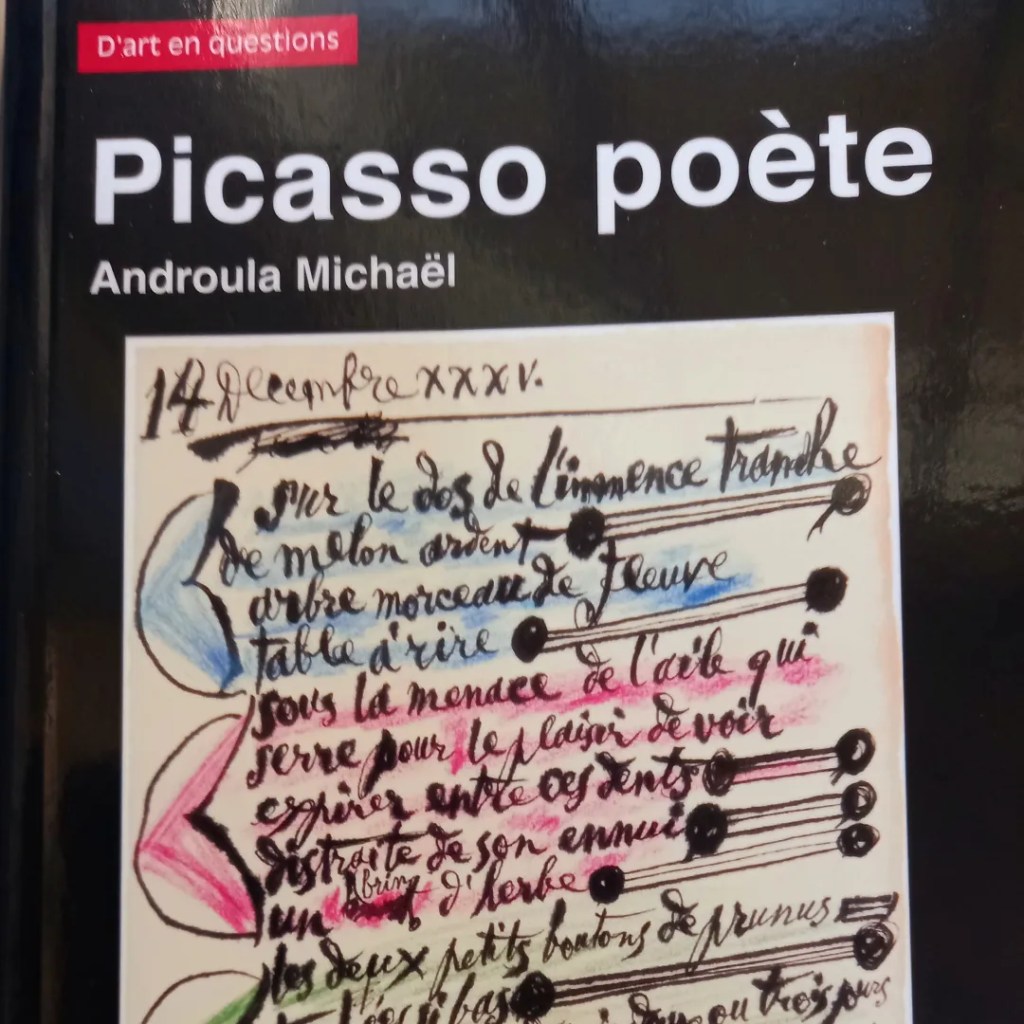 D'art en questions
Picasso poète
Androula Michaël
14 Decembre XXXV.
sur le dos de l'immence tranche
de melon ardent
arbre morceau de fleuve
table à rire
sous la menace de l'aile qui
serre pour le plaisir de voir
expirer entre ces dents
distraite de son ennui
un bring d'herbe
les deux petits boutons de prunus
si bas
deux ou trois jours